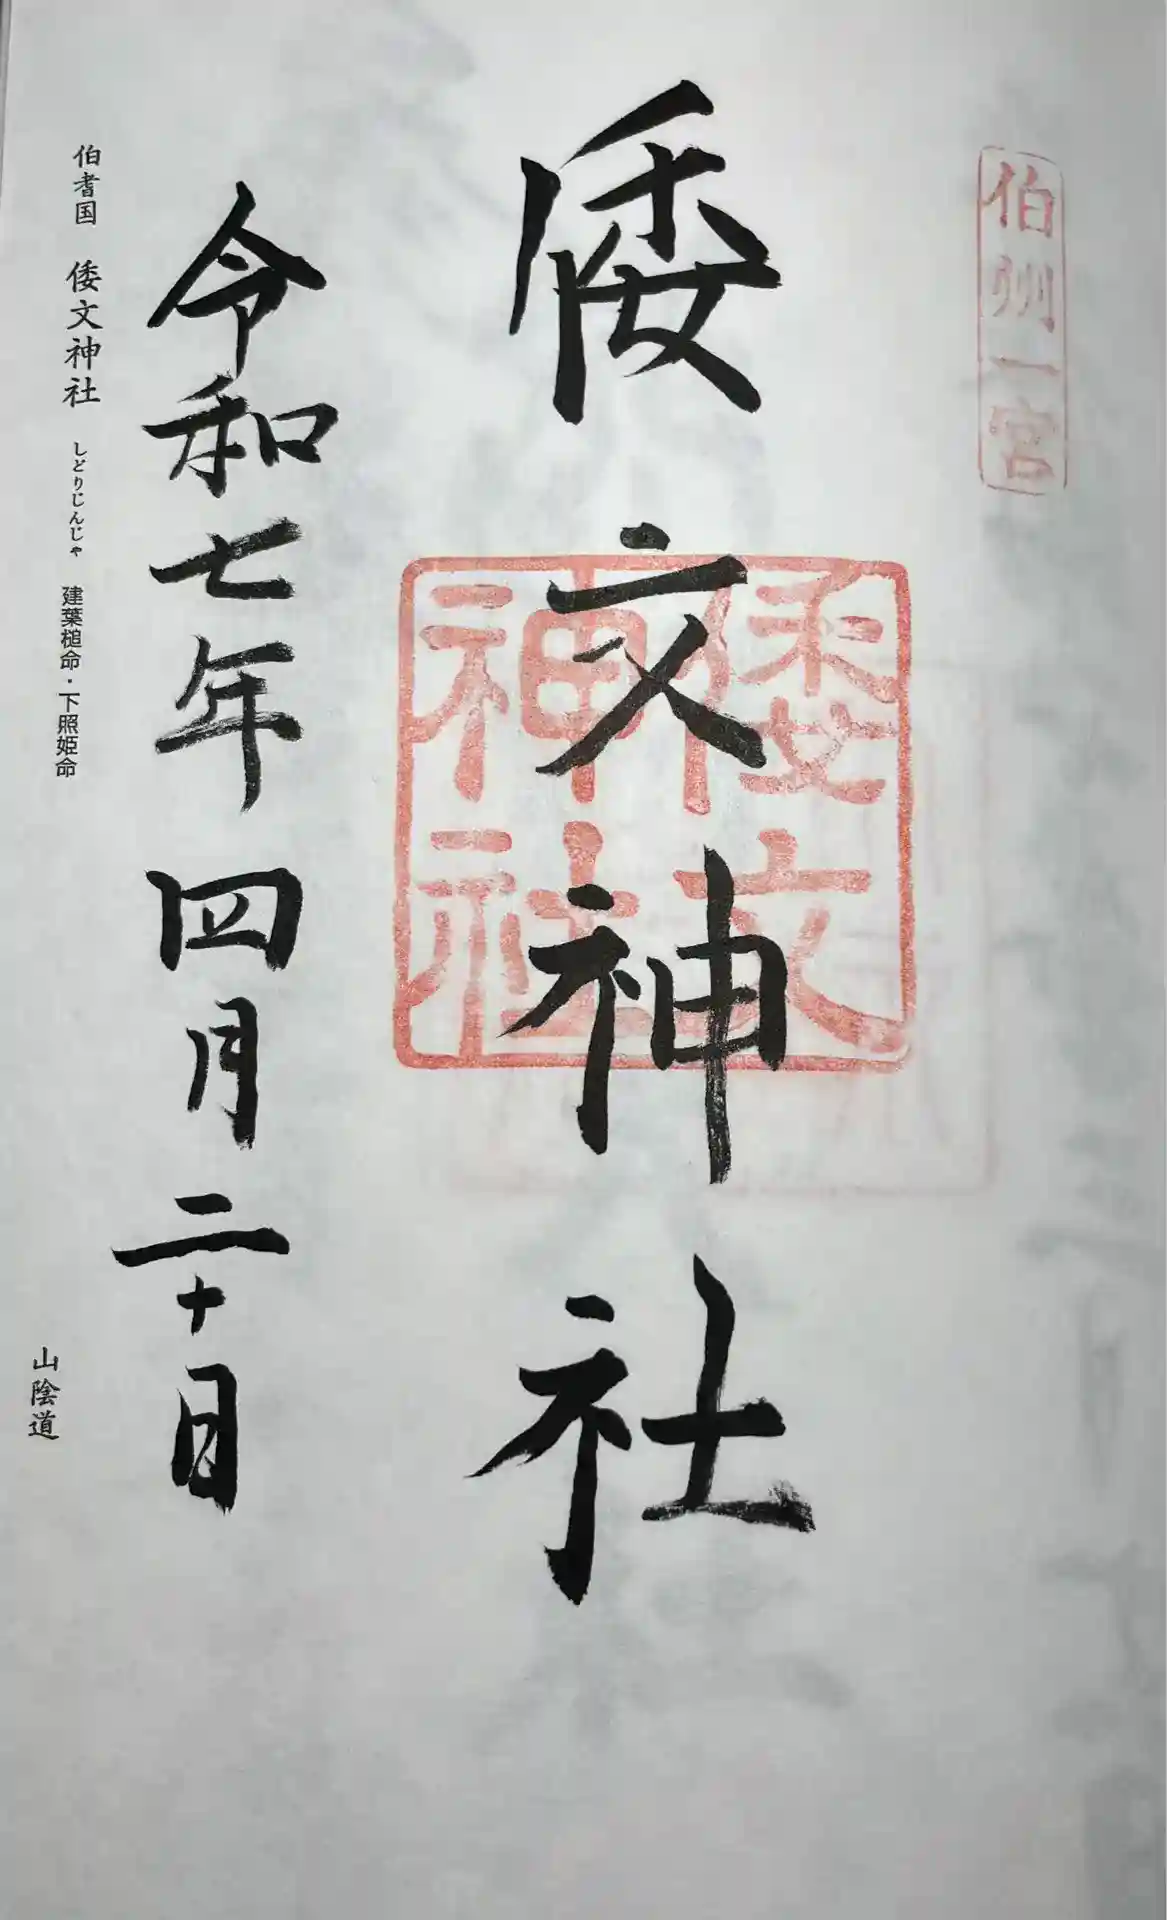 伯州一宮
倭文神社
倭文神社
令和七年四月二十日
伯耆国 倭文神社 しとりじんじゃ 建葉槌命・下照姫命
山陰道